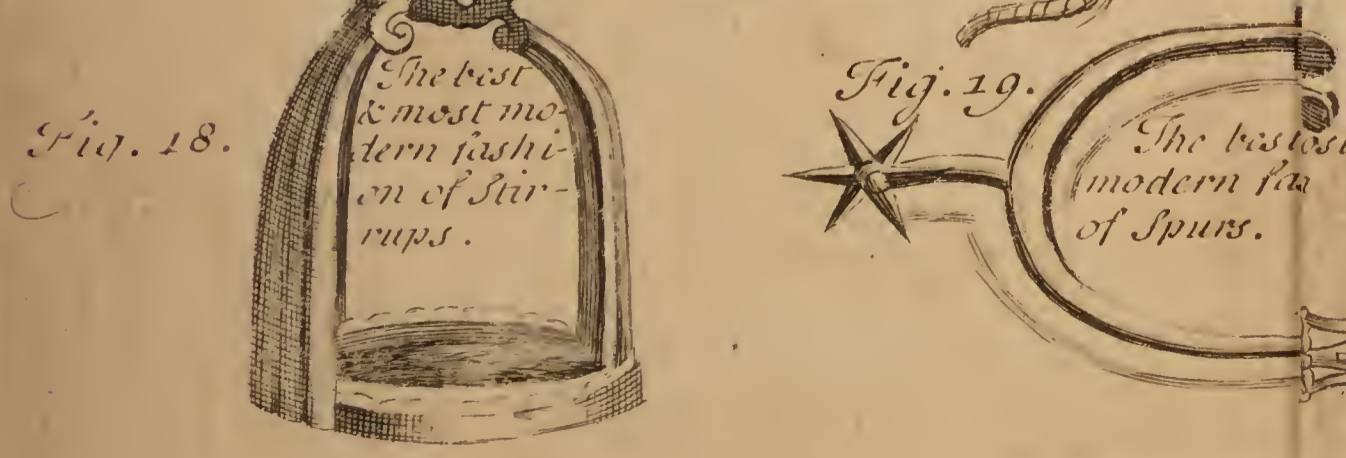 Fig. 18.
The best
& most mo-
dern fashi-
on of Stir-
rups.
Fig. 19.
The best
modern
of Spurs.